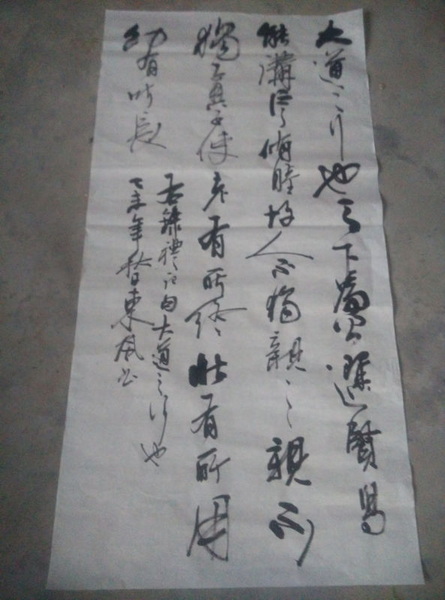 大道之行也天下為公選賢與
能講信脩睦故人不獨親其親不
獨子其子使老有所終壯有所用
幼有所長
右錄禮記句大道之行也
乙未年春東風書